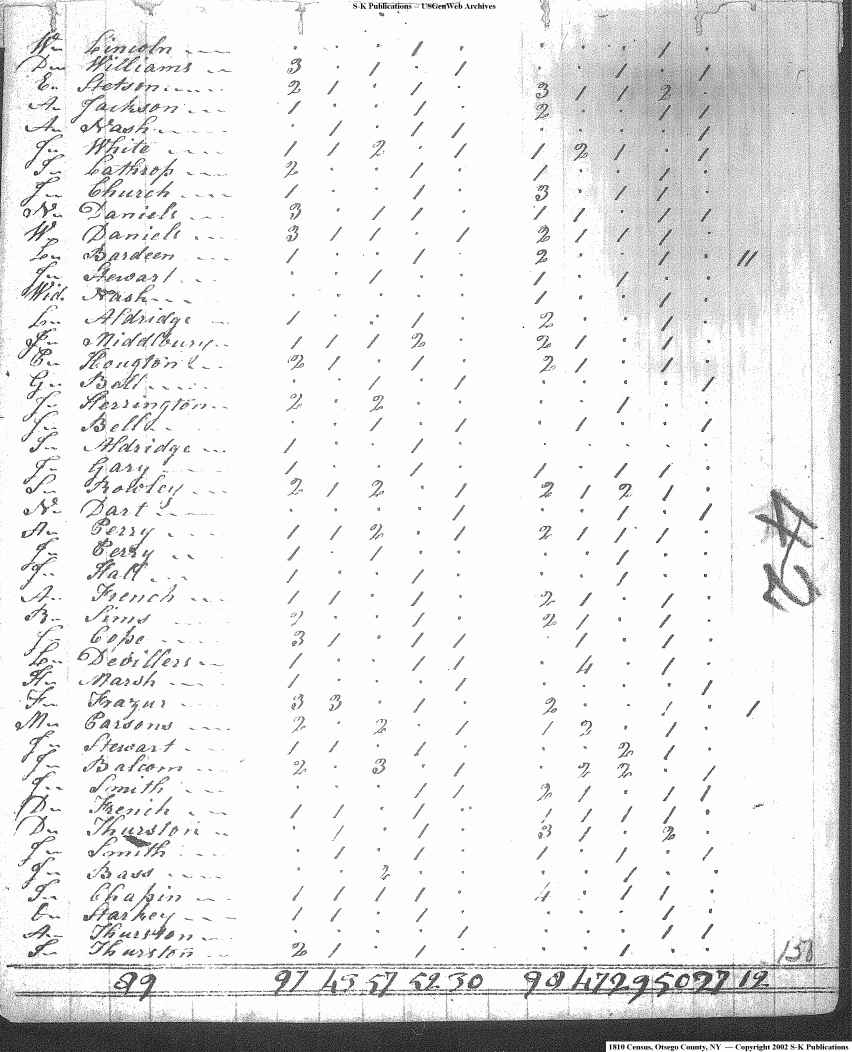 S-K Publications -- USGenWeb Archives
Wm Lincoln . . . 1 . . . . 1 .
Dn Williams 3 . 1 . 1 . . 1 . 1
En Stetson 2 1 . 1 . 3 1 1 2 .
An Jackson 1 . . 1 . 2 . . 1 1
An Nash . 1 . 1 1 . . . . 1
Jn White 1 1 2 . 1 1 2 1 . 1
Lathrop 2 . . 1 . 1 . . 1 .
Jn Church 1 . . 1 . 3 . 1 1 .
Nn Daniels 3 . 1 1 . 1 1 . 1 1
Wm Daniels 3 1 1 . 1 2 1 1 1 .
Ln Bardeen 1 . . 1 . 2 . . 1 . 11
Jn Stewart . . 1 . . 1 . 1 . .
Wid. Nash . . . . . 1 . . 1 .
Ln Aldridge 1 . . 1 . 2 . . 1 .
Middlbury 1 1 1 2 . 2 1 . 1 .
Houghton 2 1 . 1 . 2 1 . 1 .
Gn Ball . . 1 . 1 . . . . 1
Jn Herrington 2 . 2 . . . . 1 . .
Jn Bell . . 1 . 1 . 1 . . 1
Aldridge 1 . . 1 . . . . . .
Gary 1 . . 1 . 1 . 1 1 .
Sn Rowley 2 1 2 . 1 2 1 2 1 .
Nn Dart . . . . 1 . . 1 . 1
An Perry 1 1 2 . 1 2 1 1 1 .
Jn Perry 1 . 1 . . . . 1 . .
Hall 1 . . 1 . . . 1 . .
An French 1 1 . 1 . 2 1 . 1 .
Bn Sims 2 . . 1 . 2 1 . 1 .
Cope 3 1 . 1 1 . 1 . 1 .
Ln Devillers 1 . . 1 1 . 4 . 1 .
Hn Marsh 1 . . . 1 . . . . 1
Fn Frazur 3 3 . 1 . 2 . . 1 . 1
Mn Parsons 2 . 2 . 1 1 2 . 1 .
Jn Stewart 1 1 . 1 . . . 2 1 .
Jn Balcom 2 . 3 . 1 . 2 2 . 1
Smith . . . 1 1 2 1 . 1 1
Dn French 1 1 . 1 . 1 1 1 1 .
Dn Thurston . 1 . 1 . 3 1 . 2 .
Jn Smith . 1 . 1 . 1 . 1 . 1
Bass . . 2 . . . . 1 . .
Chapin 1 1 1 1 . 4 . 1 1 .
Starkey 1 1 . 1 . . . . 1 .
An Thurston . . . . 1 . . . 1 1
Thurston 2 1 . 1 . . . 1 . .
42
89 97 43 57 52 30 98 47 29 50 27 12
1810 Census, Otsego County, NY — Copyright 2002 S-K Publications